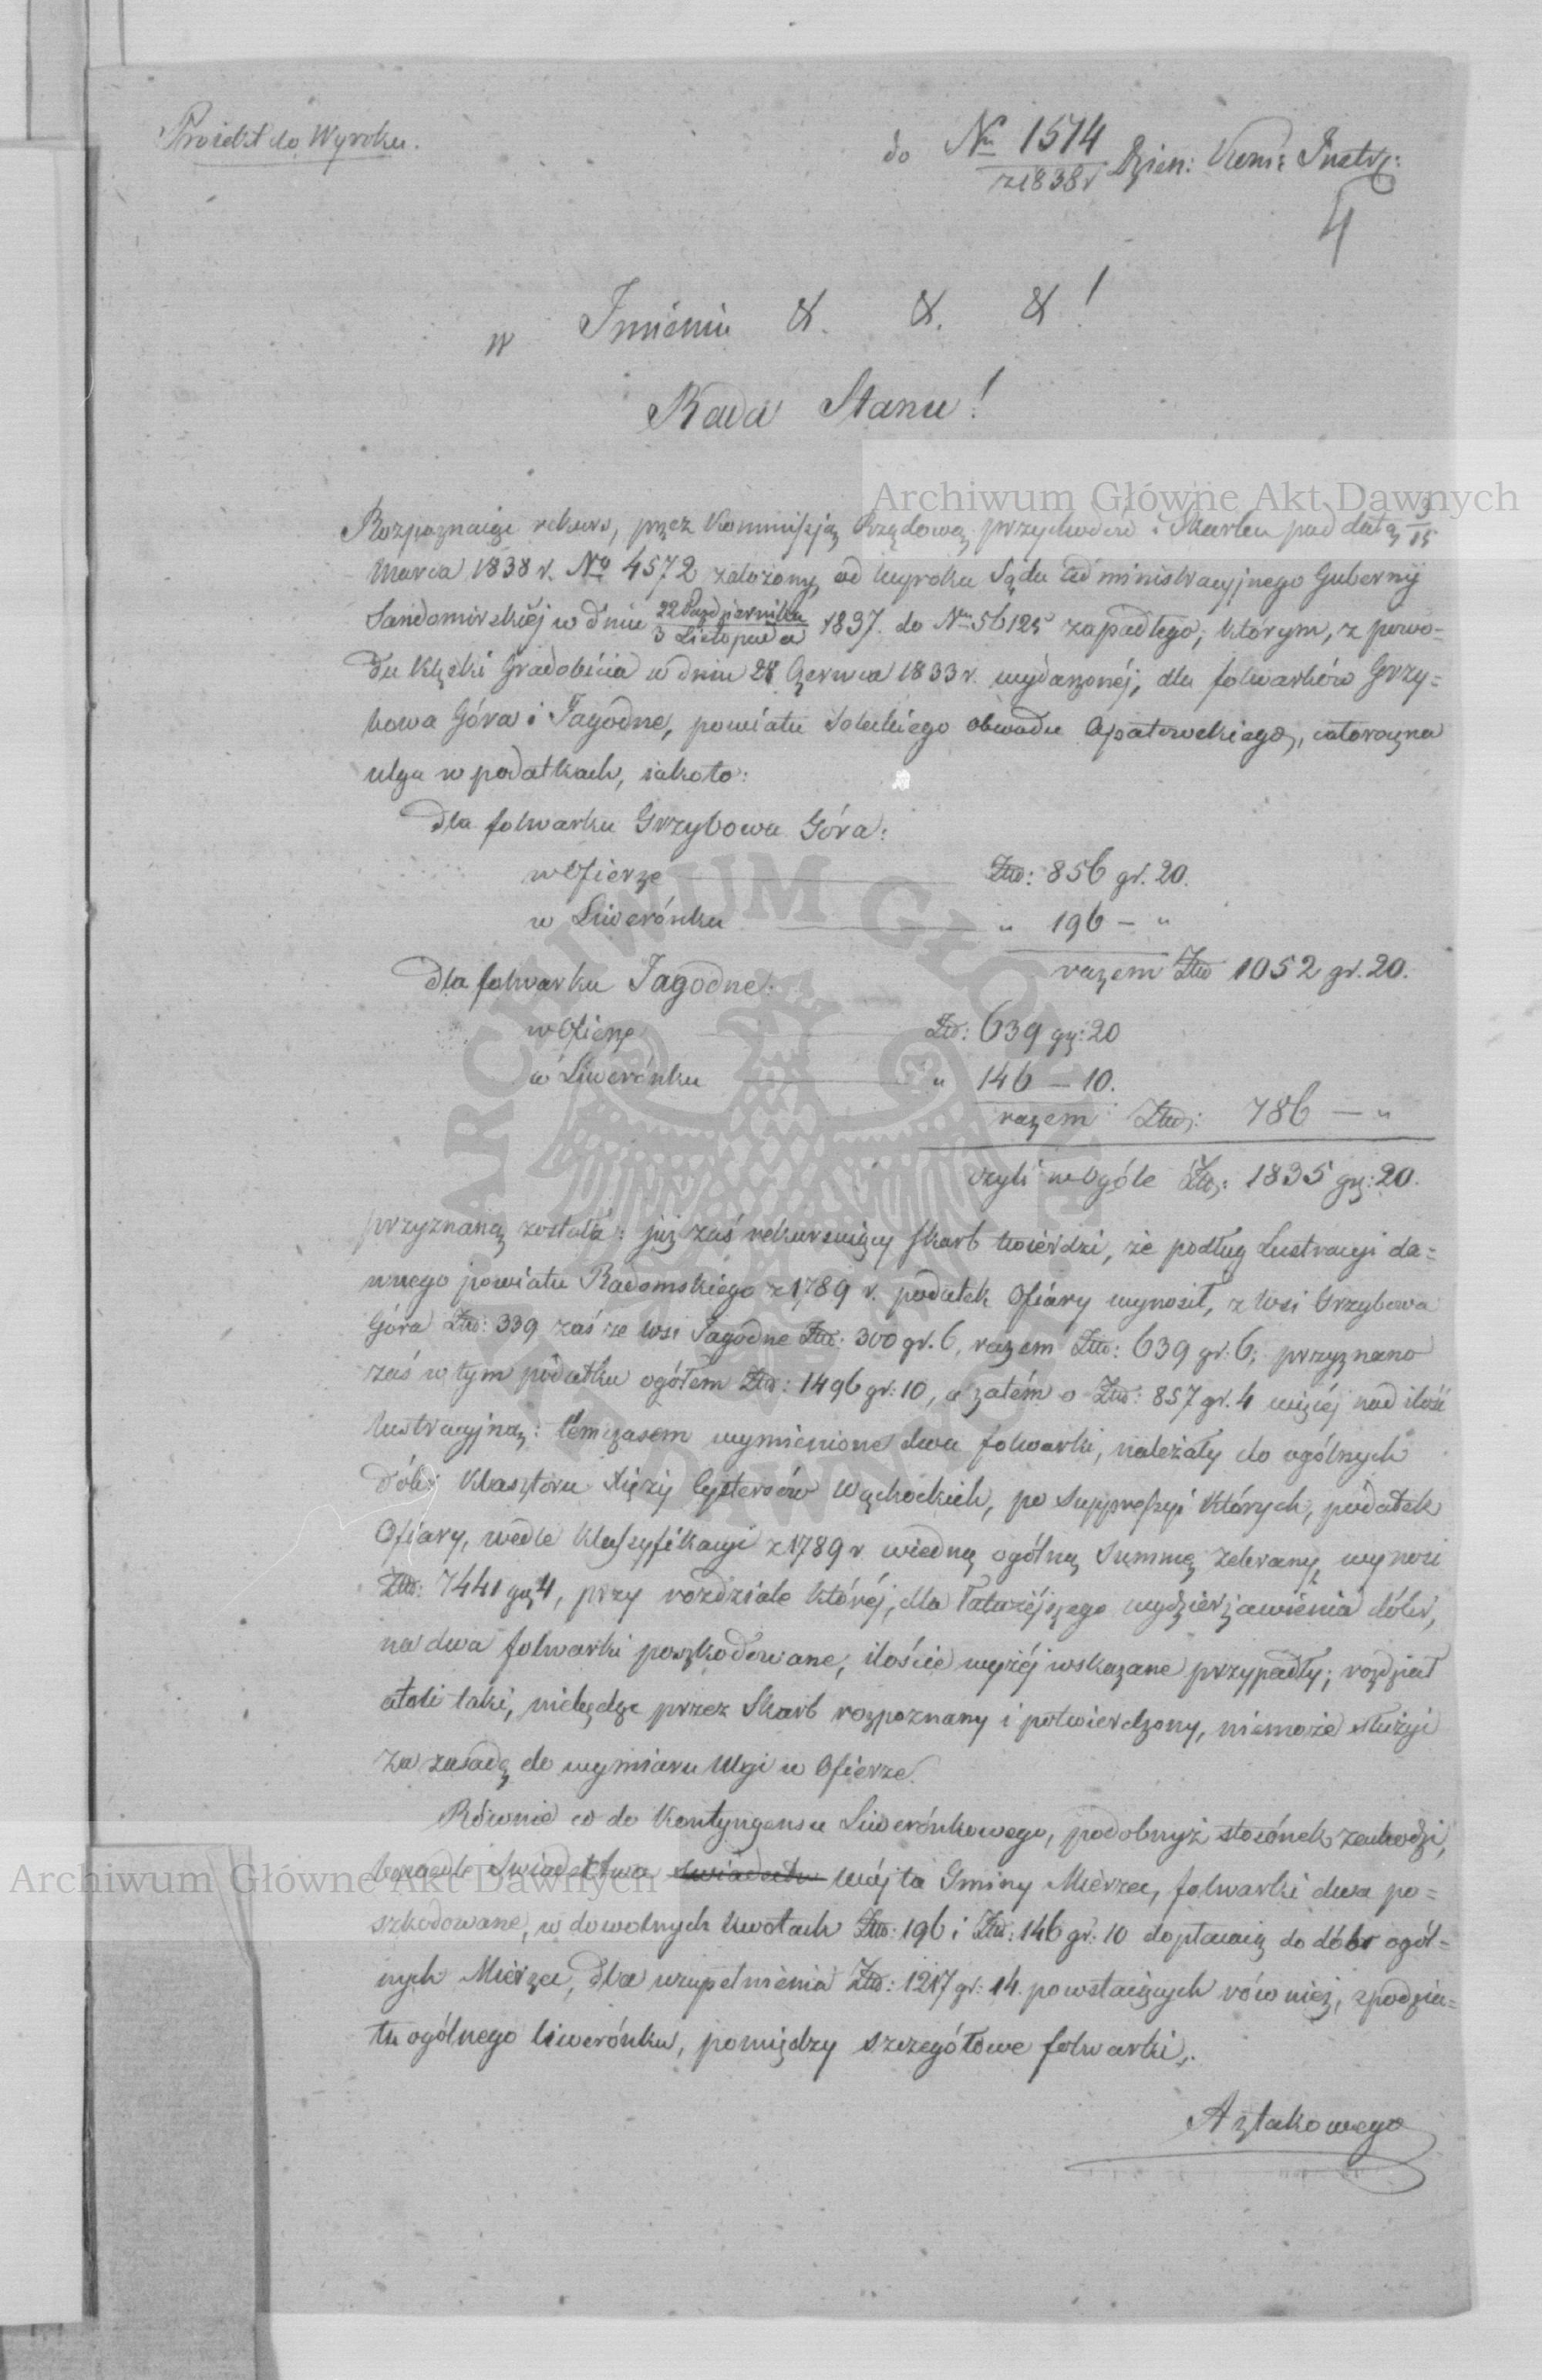 Proiekt do Wyroku.
do Nr 1514 z 1838 r Dzien: Kom: Instr:
4
w Imieniu &. &. &!
Rada Stanu!
Archiwum Główne Akt Dawnych
Rozpoznaiąc rekurs, przez Kommissją Rządową przychodów i Skarbu pod datą 3/15
Marca 1838 r. No 4572 założony, od wyroku Sądu Administracyjnego Gubernij
Sandomirskiéj w dniu 22 Października / 3 Listopada 1837. do Nr 56125 zapadłego, którym, z powo=
du klęski Gradobicia w dniu 28 Czerwca 1833 r. wydarzonéj, dla folwarków Grzy=
bowa Góra i Jagodne, powiatu Soleckiego obwodu Opatowskiego, całoroczna
ulga w podatkach, iakoto:
dla folwarku Grzybowa Góra:
w Ofierze Złtp: 856 gr. 20.
w Liwerónku " 196 – "
razem Złtp 1052 gr. 20.
dla folwarku Jagodne:
w Ofierze Złtp: 639 gr: 20
w Liwerónku " 146 – 10.
razem Złtp: 786 — "
czyli w ogóle Złtp: 1835 gr: 20.
przyznaną została: już zaś rekursuiący skarb twierdzi, że podług Lustracyi da=
wnego powiatu Radomskiego z 1789 r. podatek Ofiary wynosił, z wsi Grzybowa
Góra Złtp: 339 zaś ze wsi Jagodne Złtp: 300 gr. 6, razem Złtp: 639 gr: 6; przyznano
zaś w tym podatku ogółem Złtp: 1496 gr: 10, a zatém o Złtp: 857 gr. 4 więcéj nad ilość
lustracyjną: tém czasem wymienione dwa folwarki, należały do ogólnych
dóbr Klasztoru Xięży Cystersów Wąchockich, po suppressyi których, podatek
Ofiary, wedle Klassyfikacyi z 1789 r w iedną ogólną Summę zebrany, wynosi
Złtp: 7441 gr 4, przy rozdziale któréj, dla łatwiéjszego wydzierżawienia dóbr,
na dwa folwarki poszkodowane, ilościé wyżéj wskazane przypadły; rozdział
atoli taki, niebędąc przez Skarb rozpoznany i potwierdzony, niemoże służyć
za zasadę do wymiaru ulgi w Ofierze.
Równie co do Kontyngensu Liwerónkowego, podobnyż stosónek zachodzi,
bo wedle świadectwa Wójta Gminy Mierzec, folwarki dwa po=
szkodowane, w dowolnych kwotach Złtp: 196 i Złtp: 146 gr: 10 dopłacaią do dóbr ogól=
nych Mierzec, dla uzupełnienia Złtp: 1217 gr: 14. powstaiących również, z podzia=
łu ogólnego liwerónku, pomiędzy szczegółowe folwarki,.
A z takowego
Archiwum Główne Akt Dawnych
ARCHIWUM GŁÓWNE AKT DAWNYCH